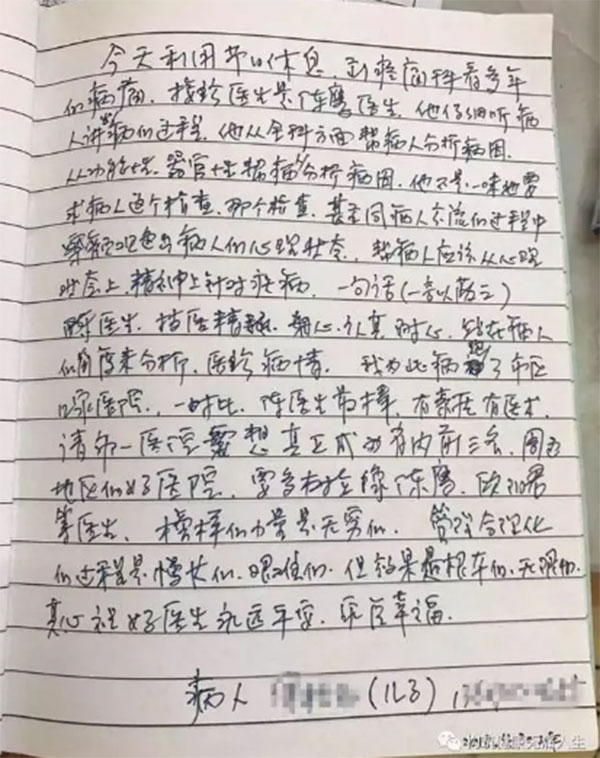 今天利用节日休息,到疼痛科看多年
的病痛,接诊医生是陈鹰医生,他仔细听病
人讲病的过程,他从全科方面帮病人分析病因,
从功能性、器官性帮病分析病因,他不是一味地要
求病人这个检查,那个检查,甚至同病人交流的过程中
病人的心理状态,帮病人应该从心理
状态上,精神上针对疾病,一句话(一言以蔽之)
陈医生,技医精,细心,认真,耐心,站在病人
的角度来分析,医诊病情。我为此病跑了市区
家医院,一对比,陈医生最棒,有素质有医术,
请郊一医院要想真正成为省内前三名,周边
地区的好医院,要多树立像陈鹰,欧阳君
等医生,榜样的力量是无穷的。管理合理化
的过程是漫长的,艰难的,但效果是很好的,无限的,
真心祝好医生永远平安,家庭幸福。
病人 (儿子)
人生